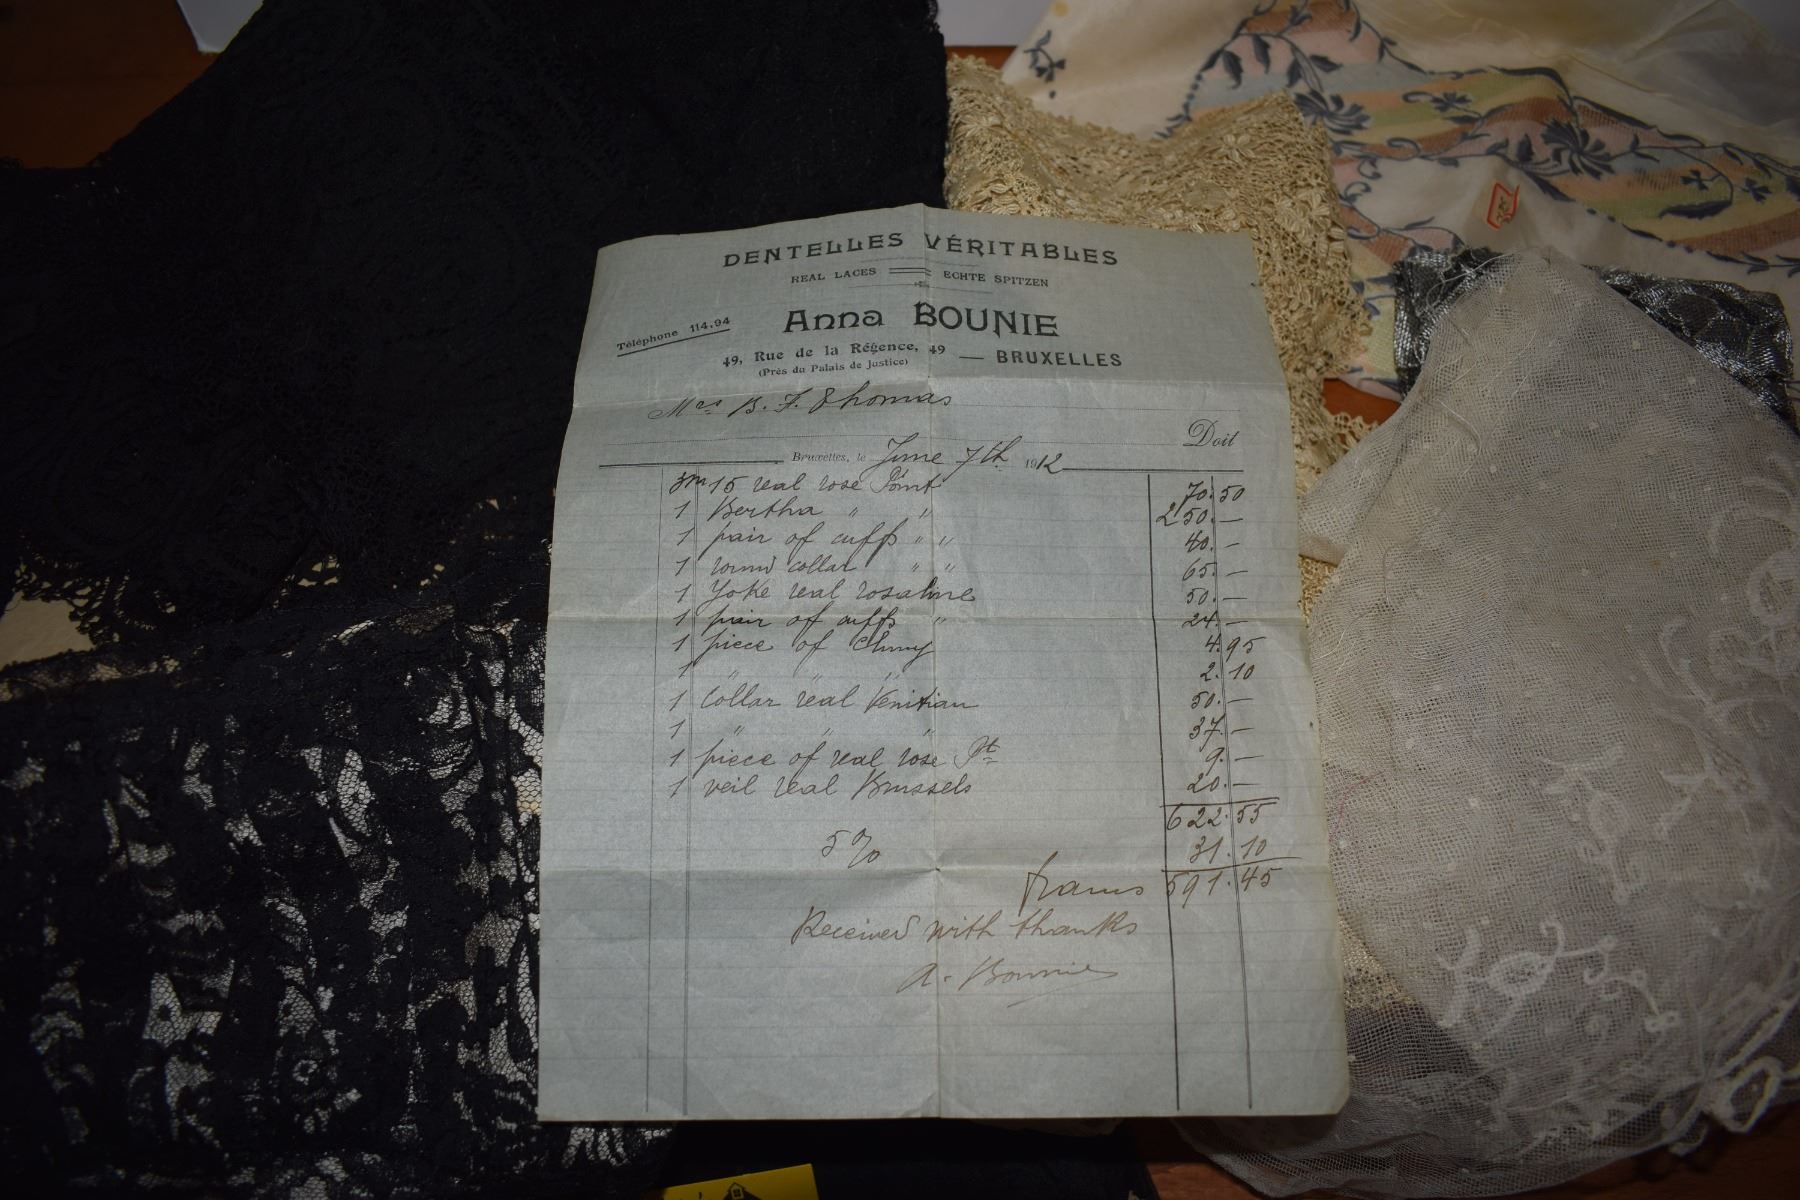 DENTELLES VÉRITABLES
REAL LACES ECHTE SPITZEN
Téléphone 114.94
Anna BOUNIE
49, Rue de la Régence, 49 — BRUXELLES
(Près du Palais de Justice)
Mrs B. F. Thomas
Doit
Bruxelles, le June 7th 1912
3m 15 real rose Point 70.50
1 Bertha " " 250.—
1 pair of cuffs " " 40.—
1 round collar " " 65.—
1 Yoke real rosaline 50.—
1 pair of cuffs " 24.—
1 piece of Cluny 4.95
1 " " 2.10
1 Collar real Venitian 50.—
1 " " " 37.—
1 piece of real rose Pt 9.—
1 veil real Brussels 20.—
622.55
5% 31.10
francs 591.45
Received with thanks
A. Bounie